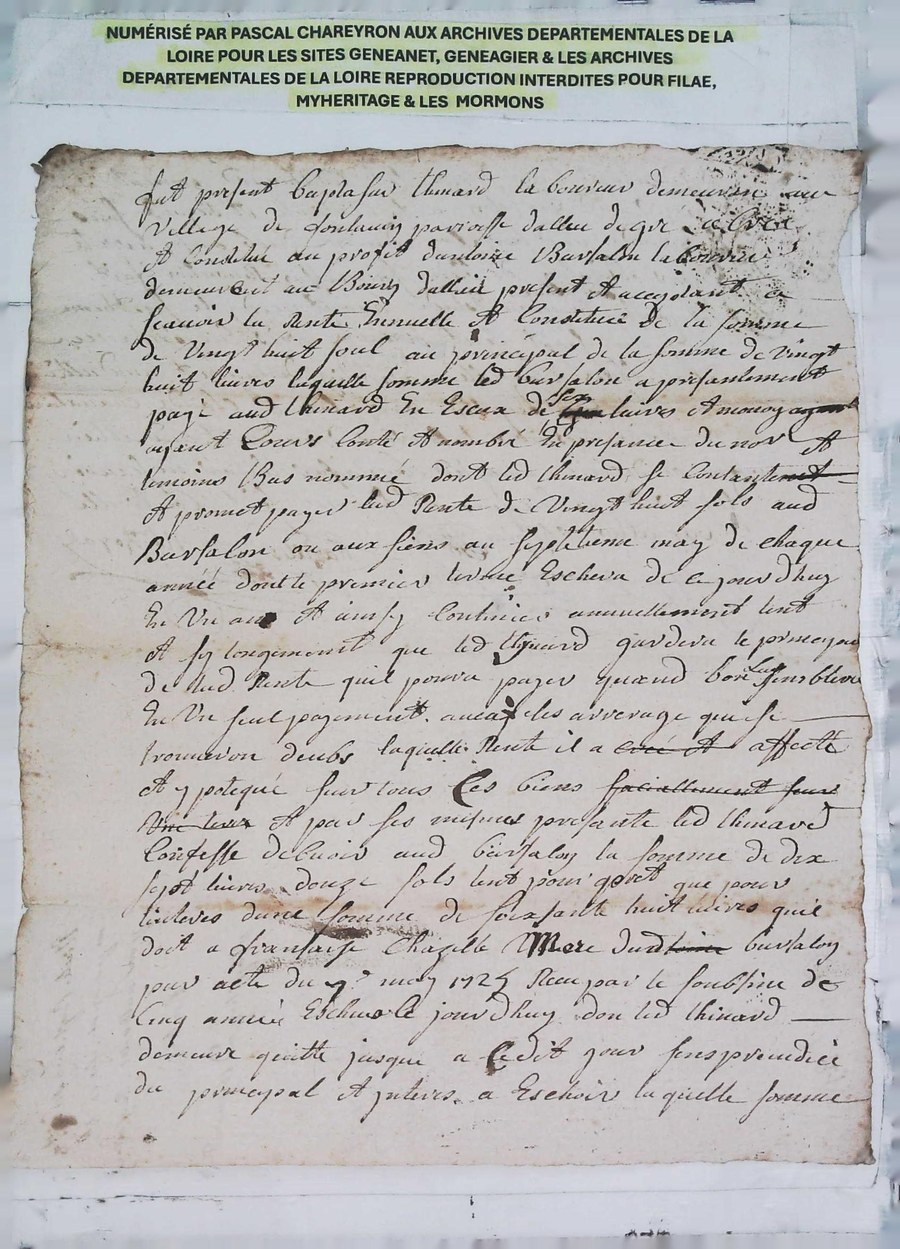 NUMÉRISÉ PAR PASCAL CHAREYRON AUX ARCHIVES DEPARTEMENTALES DE LA
LOIRE POUR LES SITES GENEANET, GENEAGIER & LES ARCHIVES
DEPARTEMENTALES DE LA LOIRE REPRODUCTION INTERDITES POUR FILAE,
MYHERITAGE & LES MORMONS
fut present thinard laboureur demeurant au
village de parroisse dallieu de gre
A Constitué au profit dantoine Barsalon laboureur
demeurant au Bourg dallieu present Et acceptant a
scavoir la Rente Annuelle Et Constituée De la somme
de Vingt huit soul au principal de la somme de vingt
huit livres laquelle somme led barsalon a presantement
payé aud thinard En Escux de six livres Et monoy
ayant Cours Conté Et nombré En presance du nore Et
temoins Bas nommé dont led thinard se Contante
Et promet payer lad Rente de Vingt huit sols aud
Barsalon ou aux siens au septieme may de chaque
année dont le premier terme Eschera de ce jourdhuy
En Un an Et ainsy Continuer annuellement tent
Et sy longement que led thinard gardera le principal
de lad Rente quil pourra payer quand bon luy semblera
En Un seul payement avec les arrerage qui se
trouveron deubs laquelle Rente il a creé Et affecté
Et ypotequé sur tous Ces biens speciallement sur
Une terre Et par ses mesmes presante led thinard
Confesse debvoir aud barsalon la somme de dix
sept livres douze sols tent pour que pour
linteres dune somme de soixsante huit livres quil
doit a fransoise Chazelle Mere dud barsalon
par acte du 7e may 1725 Receu par le soubsine de
Cinq année Escheue le jourdhuy don led thinard
demeure quitte jusque a Cedit jour sens prejudice
du principal Et jnteres a Eschoir laquelle somme